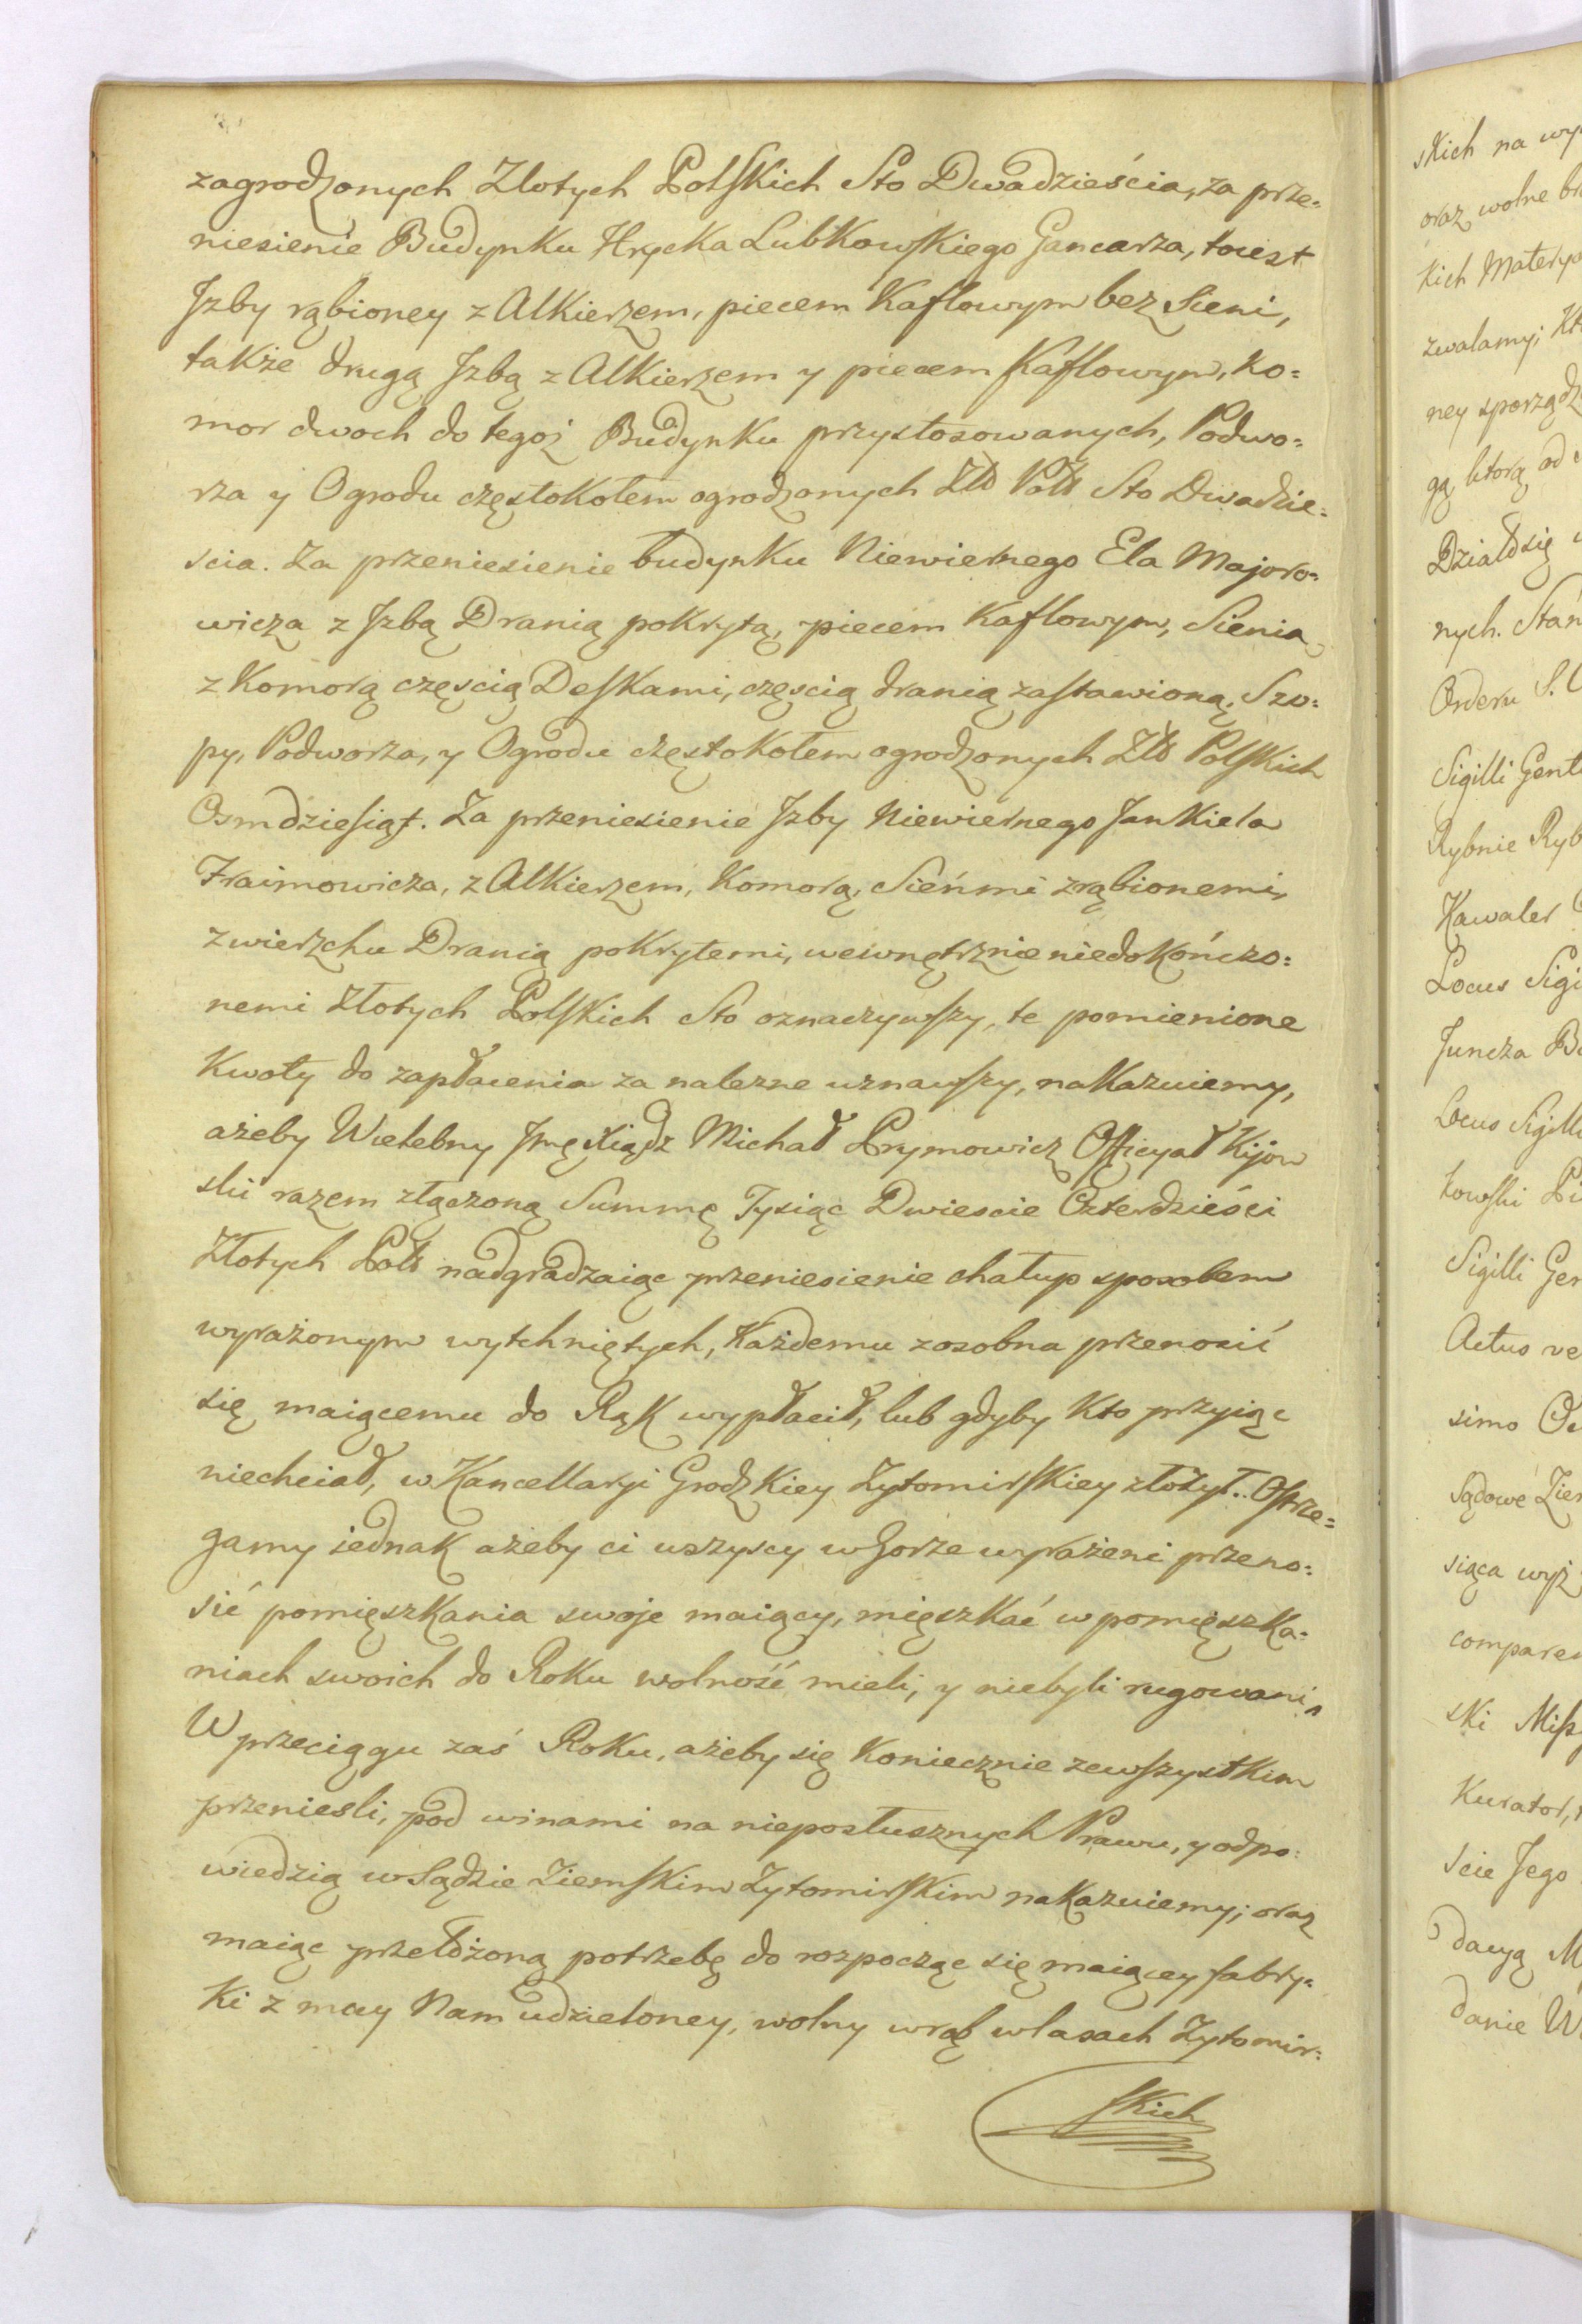 zagrodzonych Złotych Polskich Sto Dwadzieścia, za prze=
niesienie Budynku Hrycka Lubkowskiego Gancarza, toiest
Jzby rąbioney z Alkierzem, piecem Kaflowym bez Sieni,
także drugą Jzbą z Alkierzem y piecem Kaflowym, Ko=
mor dwoch do tegoż Budynku przystosowanych, Podwo=
rza y Ogrodu częstokołem ogrodzonych Złł Pols Sto Dwadzie=
scia. Za przeniesienie budynku Niewiernego Ela Majoro=
wicza z Jzbą Dranią pokrytą, piecem Kaflowym, Sienią
z Komorą częscią Deskami, częscią dranią zastawioną, Szo=
py, Podworza, y Ogrodu częstokołem ogrodzonych Złł Polskich
Osmdziesiąt. Za przeniesienie Jzby Niewiernego Jankiela
Fraimowicza, z Alkierzem, Komorą, Sieńmi zrąbionemi,
zwierzchu Dranią pokrytemi, wewnętrznie niedokończo=
nemi Złotych Polskich Sto oznaczywszy, te pomienione
Kwoty do zapłacenia za nalezne uznawszy, nakazuiemy,
ażeby Wielebny Jmę Xiądz Michał Prymowicz Officyał Kijow
ski razem złączoną Summę Tysiąc Dwiescie Czterdzieści
Złotych Pols nadgradzaiąc przeniesienie chałup sposobem
wyrażonym wytchniętych, Każdemu zosobna przenosić
się maiącemu do Rąk wypłacił, lub gdyby Kto przyiąc
niechciał, w Kancellaryi Grodzkiey Zytomirskiey złożył. Ostrze=
gamy iednak ażeby ci wszyscy w Gorze wyrażeni przeno=
sić pomięszkania swoje maiący, mięszkać w pomięszka=
niach swoich do Roku wolność mieli, y niebyli rugowani,
W przeciągu zaś Roku, ażeby się Koniecznie zewszystkim
przeniesli, pod winami na nieposłusznych Prawu, y odpo=
wiedzią w Sądzie Ziemskim Zytomirskim nakazuiemy; oraz
maiąc przełożoną potrzebę do rozpocząc się maiącey fabry=
Ki z mocy Nam udzieloney, wolny wrąb w lasach Zytomir=
skich
skich na wy
oraz wolne
kich Matery
zwalamy;
ney sporządz
gą którą od
Działo się
nych. Stan
Orderu S.
Sigilli Gent
Rybnie Ryb
Kawaler
Locus Sigi
Juncza
Locus Sigilli
kowski
Sigilli Gen
Actus ve
simo
Sądowe Ziem
siąca wyż
comparen
ski
Kurator,
scie Jego
dacyą M
danie W